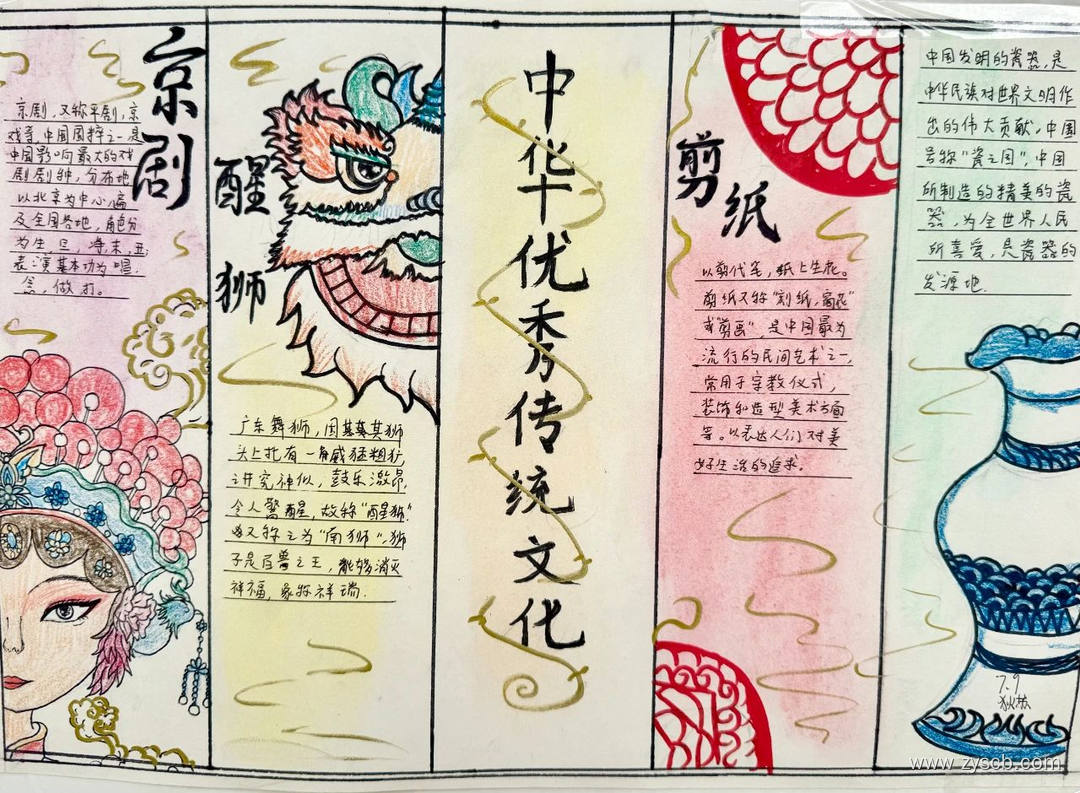 京剧
京剧，又称平剧，京
戏等，中国国粹之一，是
中国影响最大的戏
剧剧种，分布地
以北京为中心遍
及全国各地，角色分
为生，旦，净，末，丑，
表演基本功为唱，
念，做，打。
醒狮
广东舞狮，因其其狮
头上扎有一角威猛粗犷
讲究神似，鼓乐激昂，
令人警醒，故称“醒狮”.
又称之为“南狮”.狮
子是百兽之王，能够消灭
祥福，象称祥瑞.
中华优秀传统文化
剪纸
以剪代笔，纸上生花。
剪纸又称“刻纸，窗花”
或“剪画”，是中国最为
流行的民间艺术之一，
常用于宗教仪式，
装饰和造型美术方面
等。以表达人们对美
好生活的追求。
中国发明的瓷器，是
中华民族对世界文明作
出的伟大贡献，中国
号称“瓷之国”，中国
所制造的精美的瓷
器，为全世界人民
所喜爱，是瓷器的
发源地.
7.9
www.zyscb.com